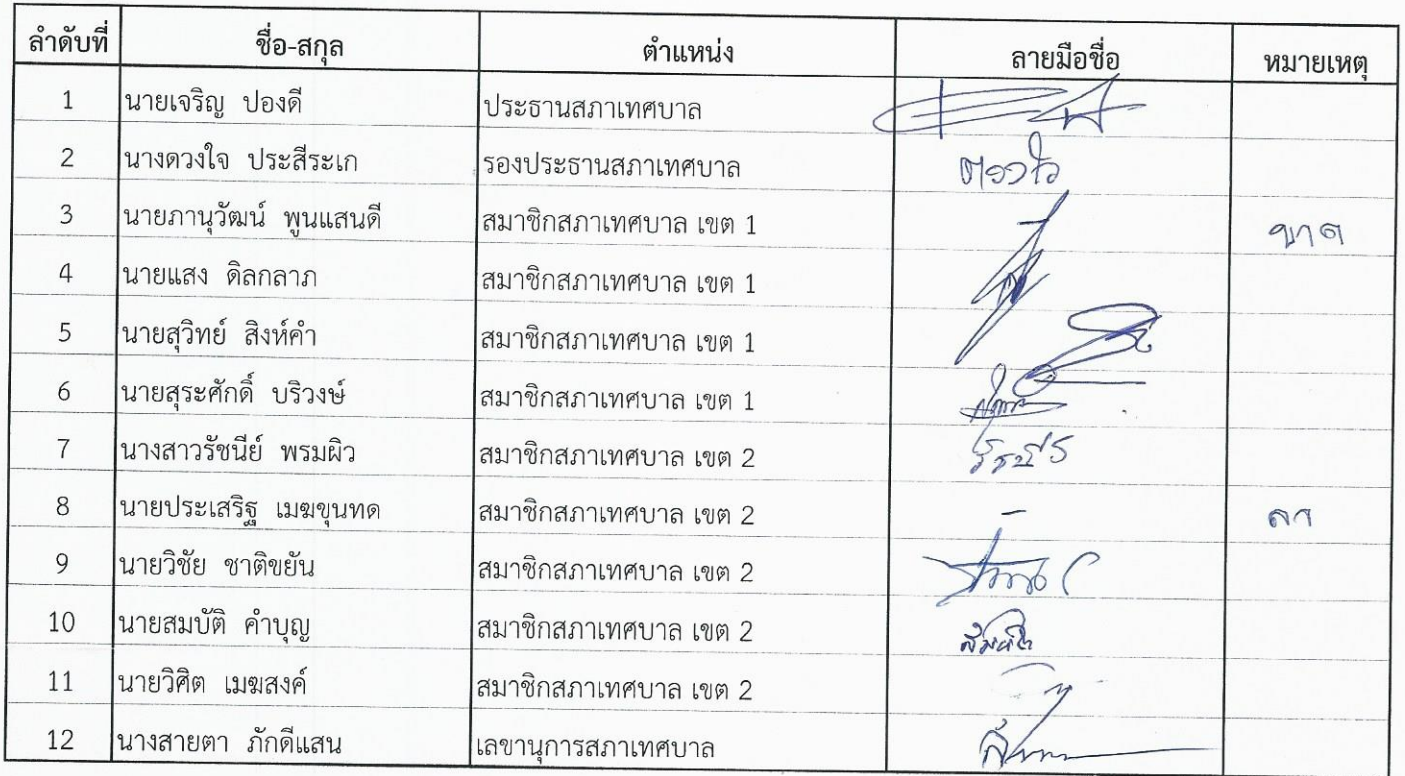 ลำดับที่ ชื่อ-สกุล ตำแหน่ง ลายมือชื่อ หมายเหตุ
1 นายเจริญ ปองดี ประธานสภาเทศบาล
2 นางดวงใจ ประสีระเก รองประธานสภาเทศบาล ดวงใจ
3 นายภานุวัฒน์ พูนแสนดี สมาชิกสภาเทศบาล เขต 1 - ขาด
4 นายแสง ดิลกลาภ สมาชิกสภาเทศบาล เขต 1
5 นายสุวิทย์ สิงห์คำ สมาชิกสภาเทศบาล เขต 1
6 นายสุระศักดิ์ บริวงษ์ สมาชิกสภาเทศบาล เขต 1
7 นางสาวรัชนีย์ พรมผิว สมาชิกสภาเทศบาล เขต 2
8 นายประเสริฐ เมฆขุนทด สมาชิกสภาเทศบาล เขต 2 - ลา
9 นายวิชัย ชาติขยัน สมาชิกสภาเทศบาล เขต 2
10 นายสมบัติ คำบุญ สมาชิกสภาเทศบาล เขต 2 สมบัติ
11 นายวิศิต เมฆสงค์ สมาชิกสภาเทศบาล เขต 2
12 นางสายตา ภักดีแสน เลขานุการสภาเทศบาล